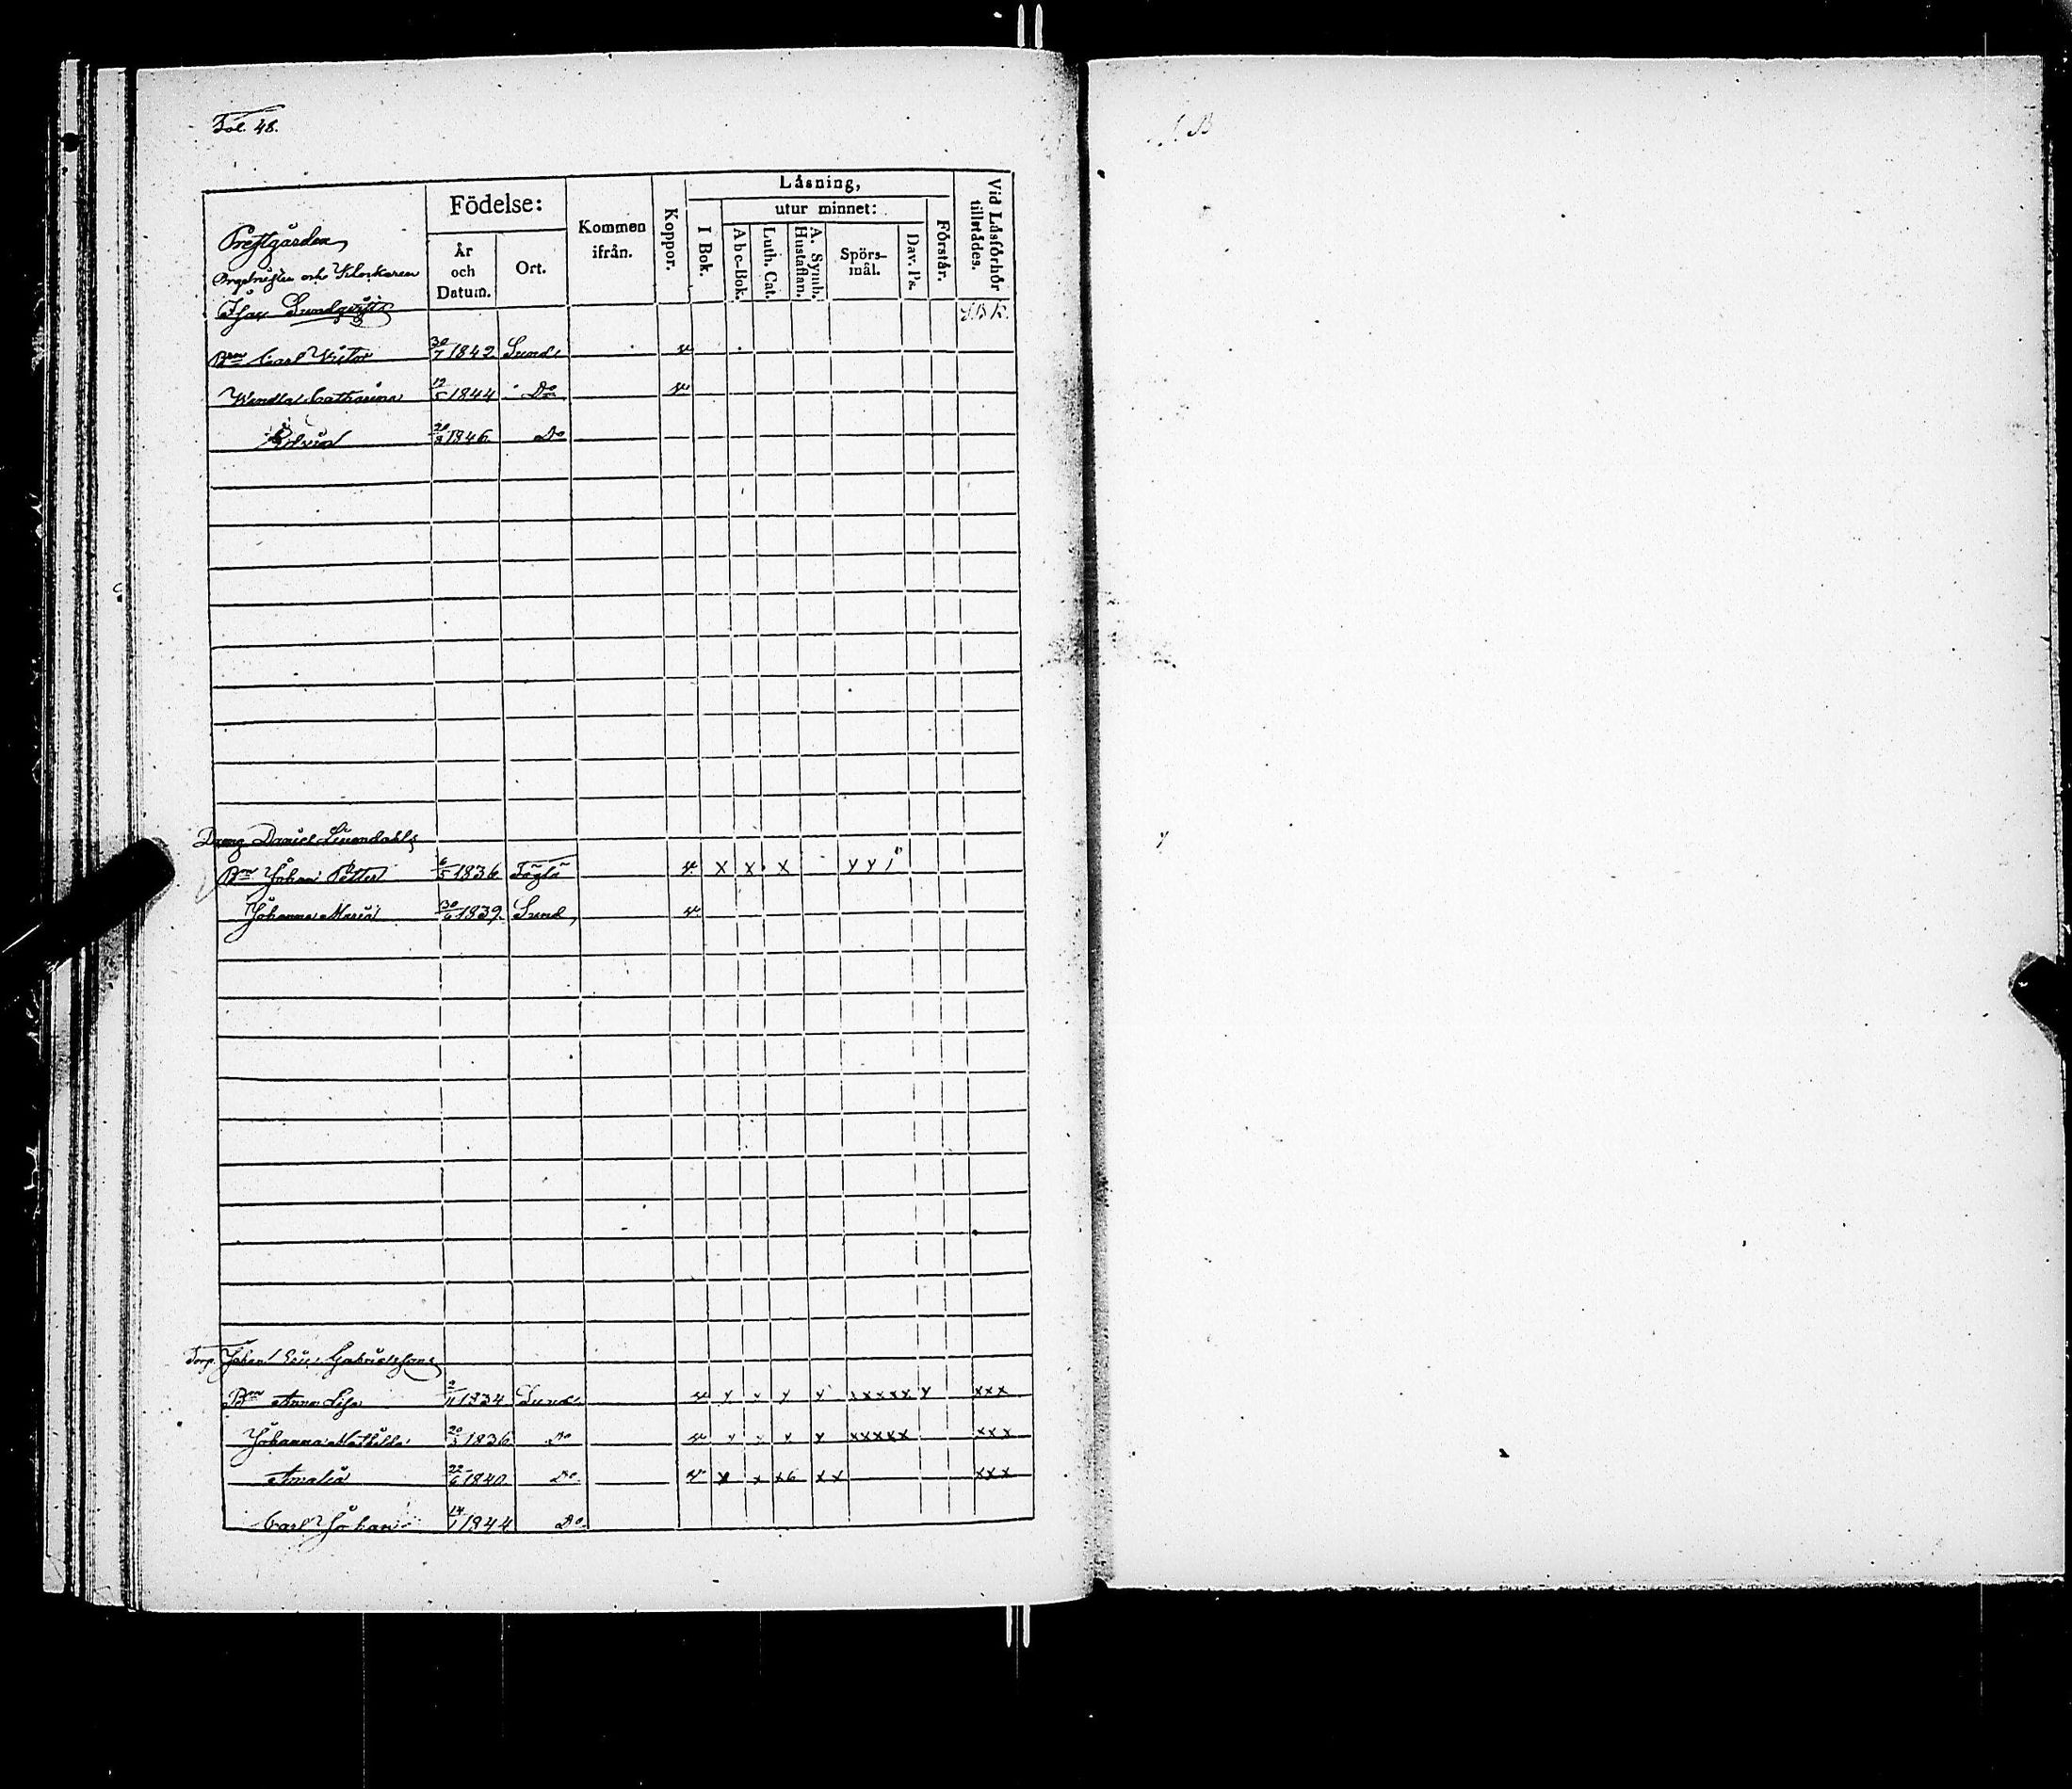 Fol. 48.
Prestgården
Organisten och Klockaren
Isac Lundqvists
Födelse:
År och Datum.
Ort.
Kommen ifrån.
Koppor.
Läsning,
I Bok.
utur minnet:
Abc-Bok.
Luth. Cat.
A. Symb. Hustaflan.
Spörs-mål.
Dav. Ps.
Förstår.
Vid Läsförhör tillstädes.
Brn Carl Victor 30/7 1842 Sund v
Wendla Catharina 12/5 1844 Do v
20/3 1846 Do
Dräng Daniel
Brn Johan Petter 6/5 1836 Föglö v x x x y y
Johanna Maria 30/6 1839 Sund v
Torp. Johan Eric Gabrielssons
Brn Anna Lisa 2/11 1834 Sund v y y y xxxxx y xxx
Johanna Mathilda 20/3 1836 Do v y y y xxxxx xxx
Amalia 22/6 1840 Do v x x x6 x x xxx
Carl Johan 14/1 1844 Do